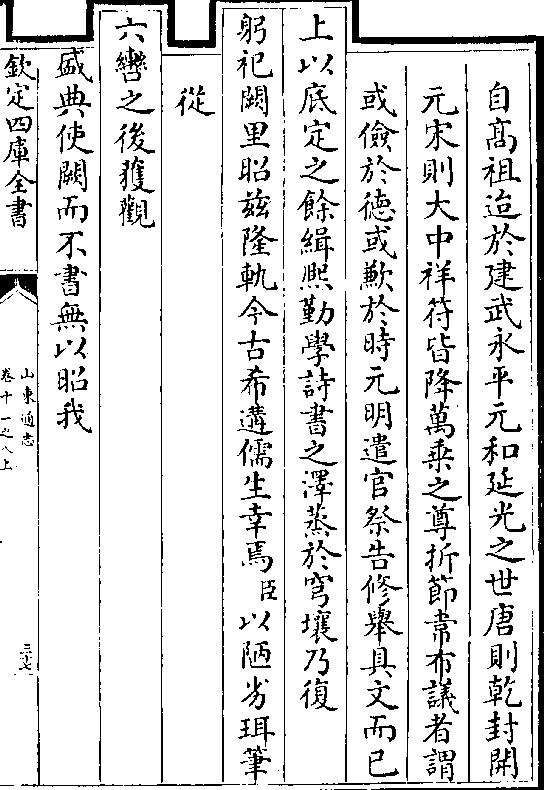 自髙祖迨於建武永平元和延光之世唐則乾封開
元宋則大中祥符皆降萬乘之尊折節韋布議者謂
或儉於德或歉於時元明遣官祭告修舉具文而已
上以底定之餘緝熙勤學詩書之澤蒸於穹壤乃復
躬祀闕里昭兹隆軌今古希遘儒生幸焉臣以陋劣珥筆
從
六轡之後獲觀
盛典使闕而不書無以昭我
欽定四庫全書
山東通志
卷十一之八上